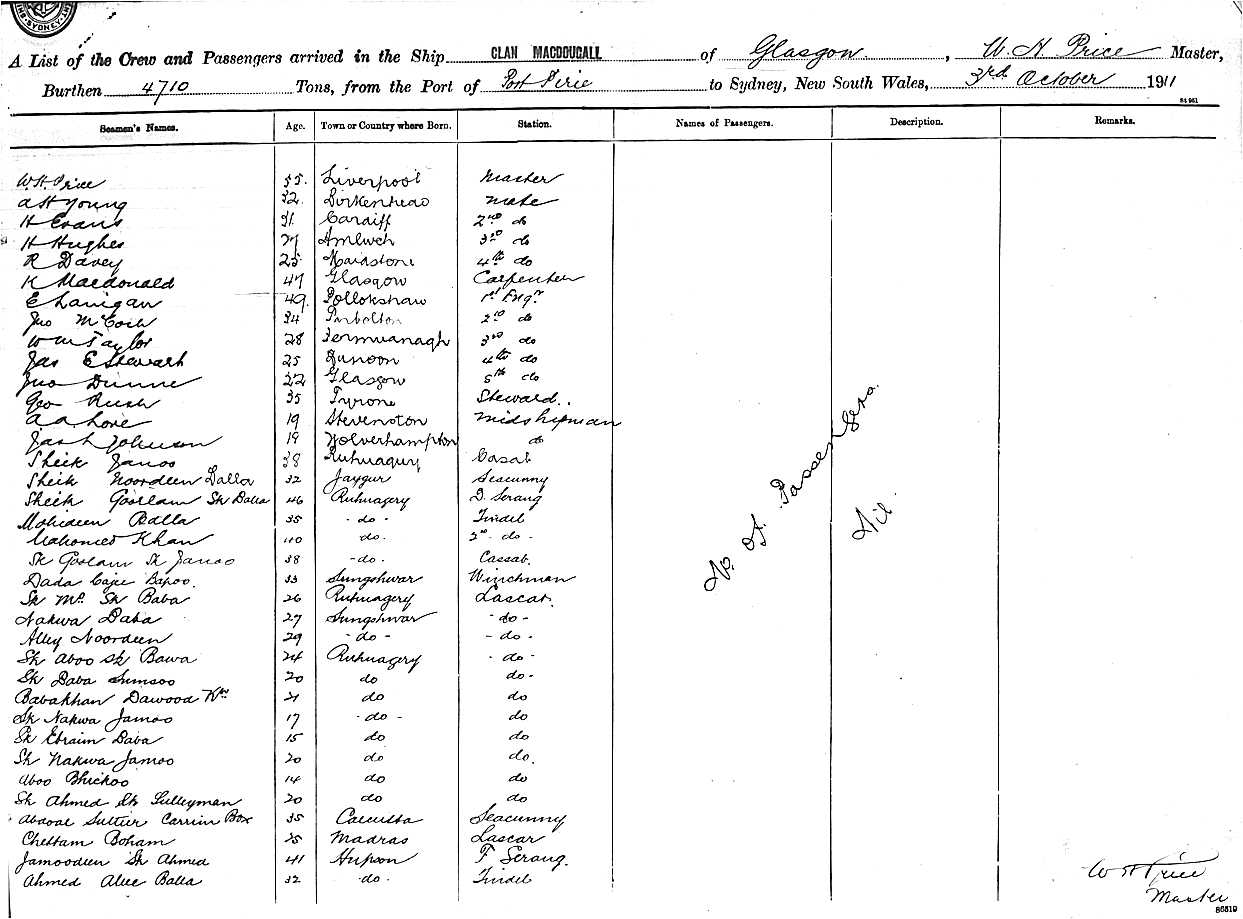 SYDNEY
A List of the Crew and Passengers arrived in the Ship CLAN MACDOUGALL of Glasgow, W. H. Price Master,
Burthen 4710 Tons, from the Port of Port Pirie to Sydney, New South Wales, 3rd October 1911
84961
Seamen's Names. Age. Town or Country where Born. Station. Names of Passengers. Description. Remarks.
W. H. Price 55. Liverpool Master
A H Young 32. Birkenhead Mate
H Evans 31 Cardiff 2nd do
H Hughes 27 Amlwch 3rd do
R Davey 25 Maidstone 4th do
K Macdonald 47 Glasgow Carpenter
E Lanigan 49. Pollokshaw 1st Engr
Jno 34 Tarbolton 2nd do
Wm Taylor 28 Fermuanagh 3rd do
Jas E Stewart 25 Dunoon 4th do
Jno Dunne 22 Glasgow 5th do
Geo Rush 35 Tyrone Steward.
A A Love 19 Stevenston Midshipman
Jas L Johnson 19 Wolverhampton do
Sheik Janoo 38 Cassab
Sheik Noordeen Dalla 32 Jaygur Seacunny
Sheik Goolam Sk Dalla 46 Rutnagery D. Serang
Mohideen Balla 35 - do - Tindel
Mahomed Khan 40 do. 2nd - do -
Sk Goolam Sk Janoo 38 - do. Cassab.
Dada Bapoo. 33 Sungshwar Winchman
Sk Md. Sk Baba 26 Rutnagery Lascar.
Nakwa Daba 27 Sungshwar - do -
Alley Noordeen 29 - do - - do -
Sk Aboo Sk Bawa 24 Rutnagery - do -
Sk Daba Sumsoo 20 do do -
Babakhan Dawood Kn 21 do do
Sk Nakwa Jamoo 17 - do - do
Sk Ebraim Daba 15 do do
Sk Nakwa Jamoo 20 do do.
Aboo Bhickoo 14 do do
Sk Ahmed Sk Sulleyman 20 do do
Abdool Carrim Box 35 Calcutta Seacunny
Chettam Boham 25 Madras Lascar
Jamoodeen Sk Ahmed 41 F Serang.
Ahmed Alee Balla 32 - do - Tindel
No. of Passengers.
Nil
W H Price
Master
86519